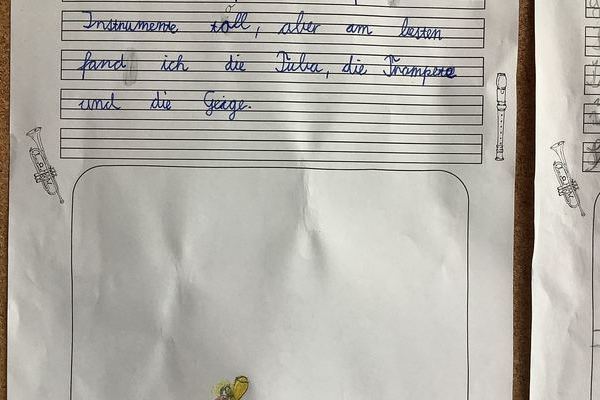 Instrumente toll, aber am besten
fand ich die Tuba, die Trompete
und die Geige.